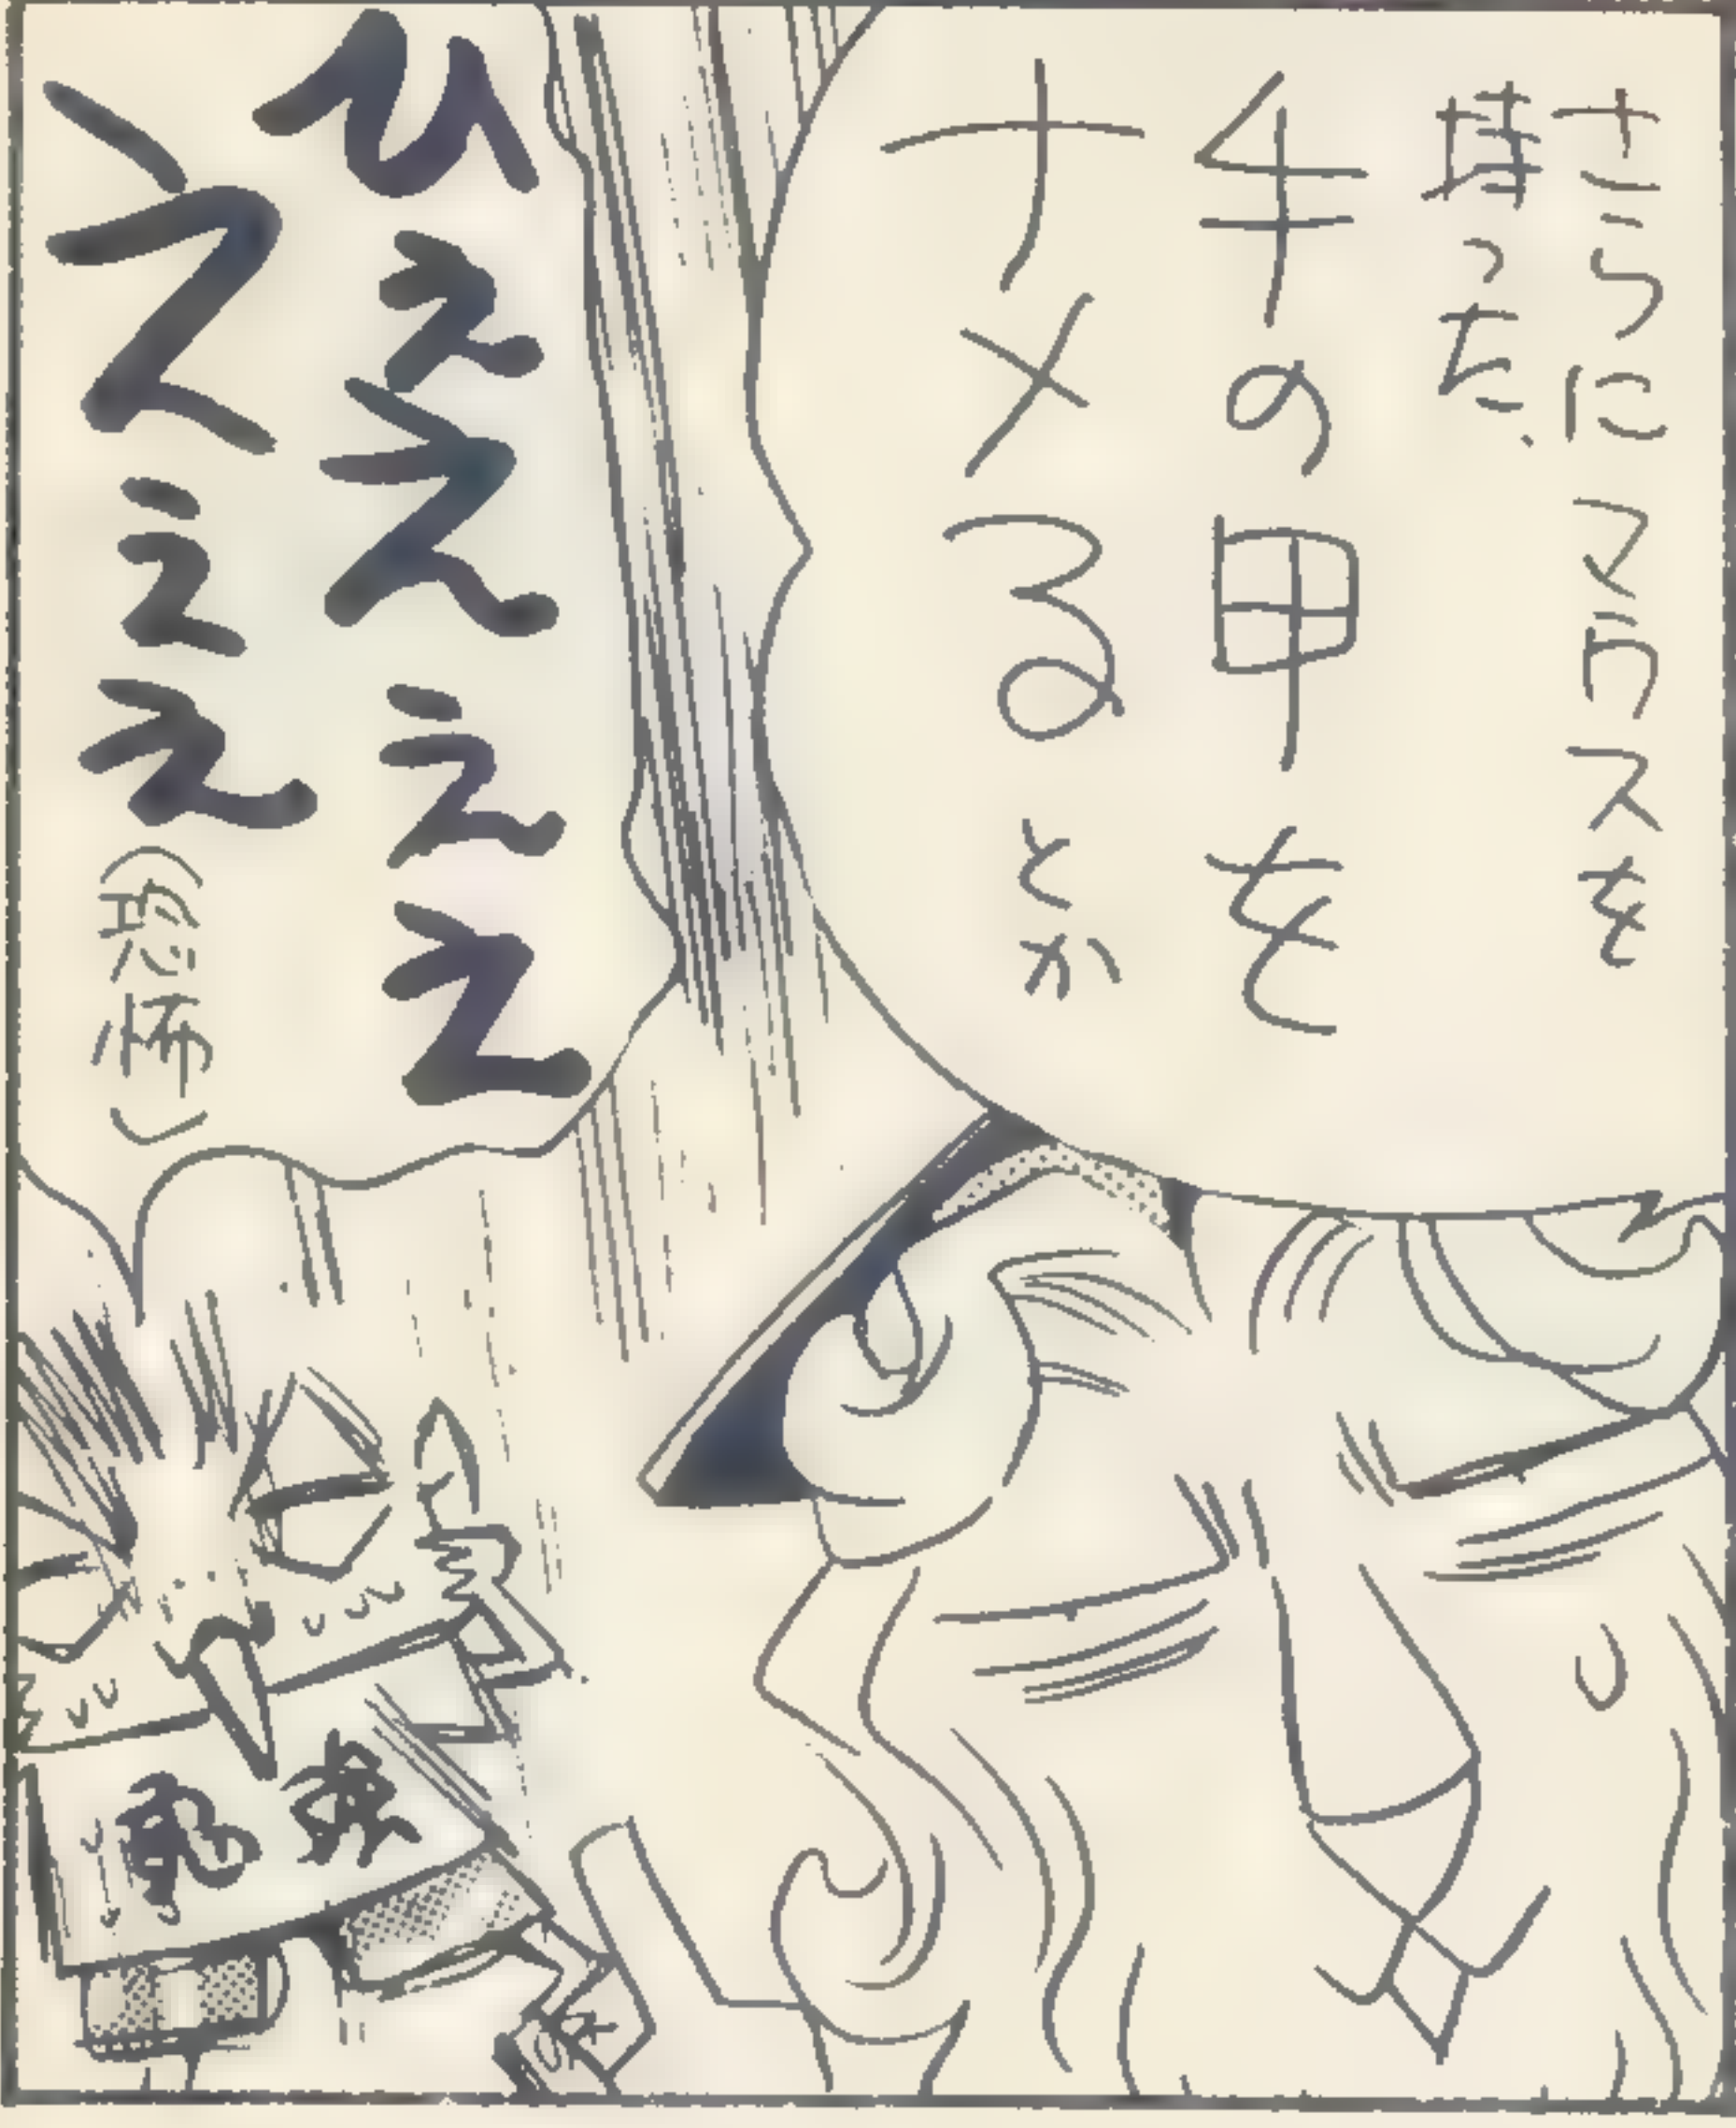 さらにマウスを
持った、
手の甲を
ナメるとか
ひええええ
えええ(恐怖)